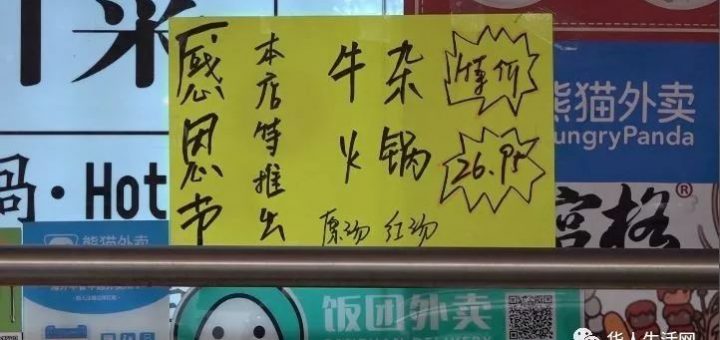 感恩节
本店特推出
牛杂
火锅
原汤 红汤
特价
26.95
熊猫外卖
ungryPanda
宫格®
鍋·Hot
熊猫外卖
饭团外卖
华人生活网